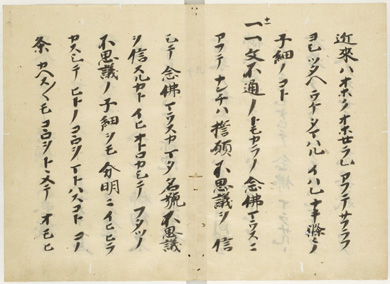 近來ハオホクオホセラレアフテサフラフ
ヨシツタヘウケタマハルイハレナキ條々ノ
子細ノコト
十一
一一文不通ノトモカラノ念佛マウスニ
アフテナンチハ誓願不思議ヲ信
シテ念佛マウスカマタ名號不思議
ヲ信スルカトイヒオトロカシテフタツノ
不思議ノ子細ヲモ分明ニイヒヒラ
カスシテヒトノコヽロヲマトハスコトコノ
条カヘス〱モコヽロヲトヽメテオモヒ